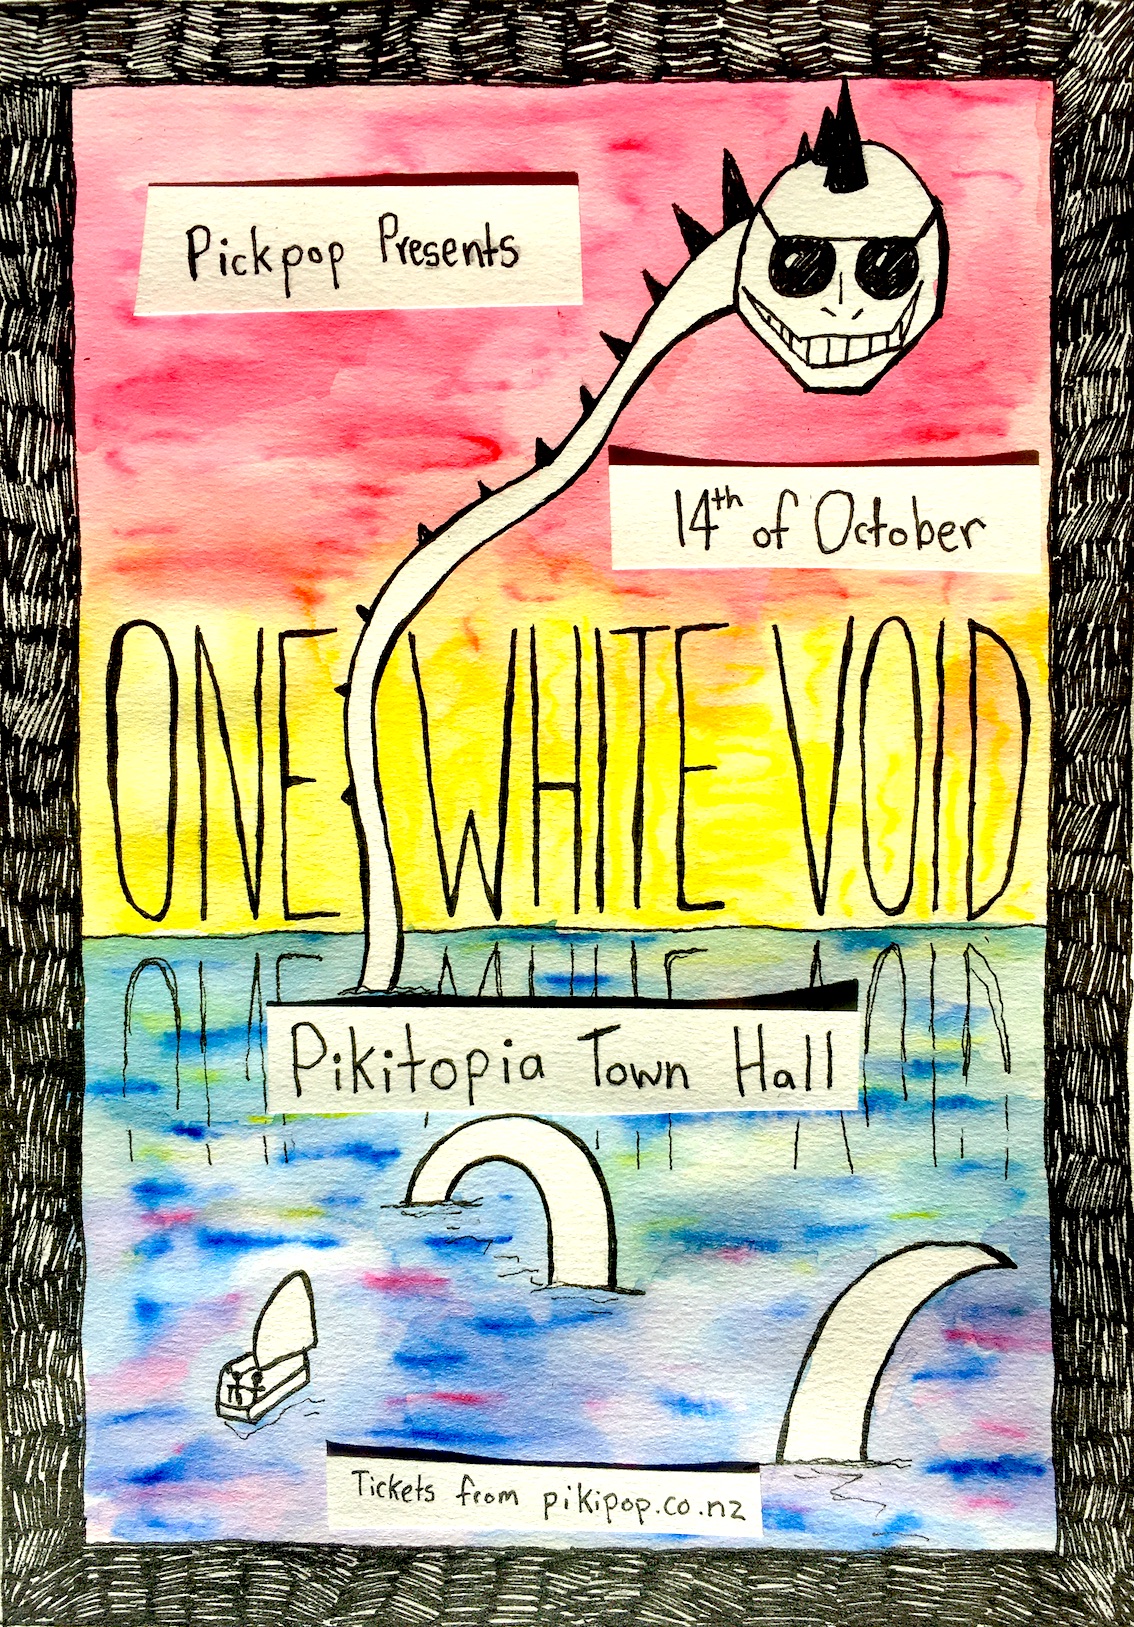 Pickpop Presents
14th of October
ONE WHITE VOID
Pikitopia Town Hall
Tickets from pikipop.co.nz